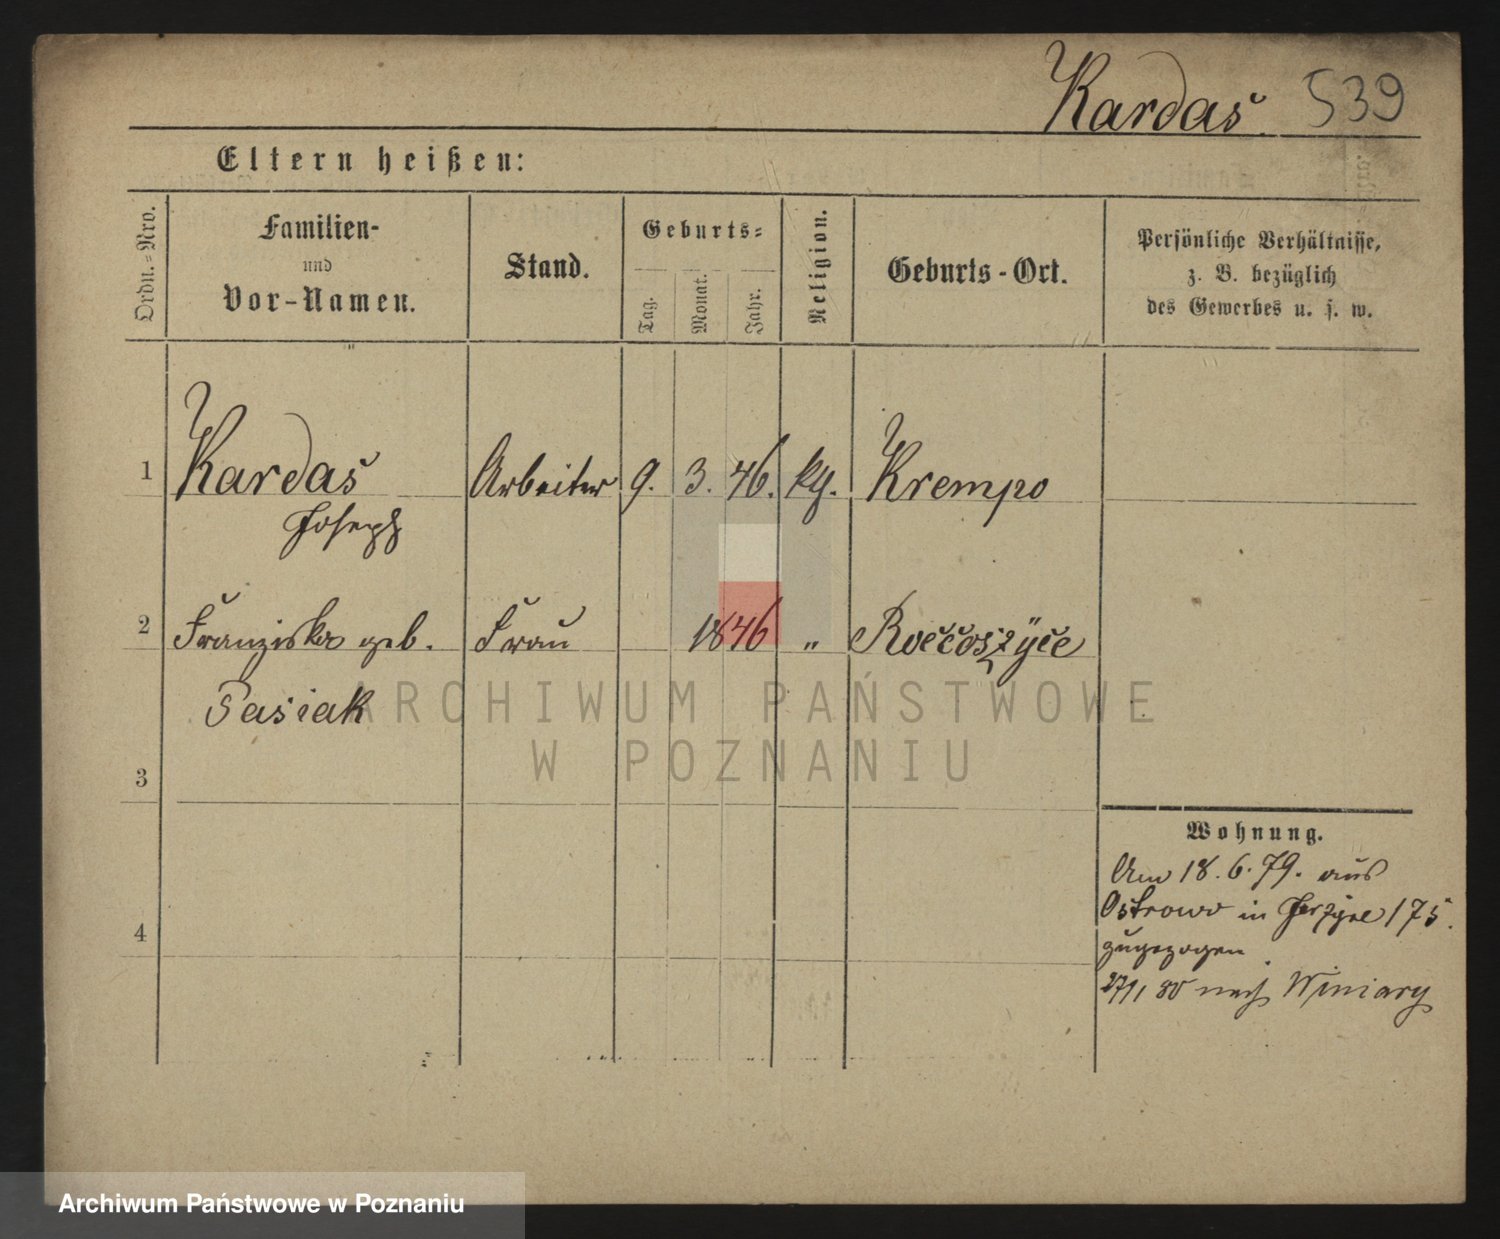 Kardaś. 539
Eltern heißen:
Ordn.-Nro.
Familien-
und
Vor-Namen.
Stand.
Geburts-
Tag.
Monat.
Jahr.
Religion.
Geburts-Ort.
Persönliche Verhältnisse,
z. B. bezüglich
des Gewerbes u. s. w.
1 Kardaś Arbeiter 9. 3. 46. kg. Krempo
Joseph
2 Franziska geb. Frau 1846 „
Pasiak
3
4
Wohnung.
Am 18.6.79. aus
Ostrowo in 175.
zugezogen
80 nach Winiary
ARCHIWUM PAŃSTWOWE
W POZNANIU
Archiwum Państwowe w Poznaniu